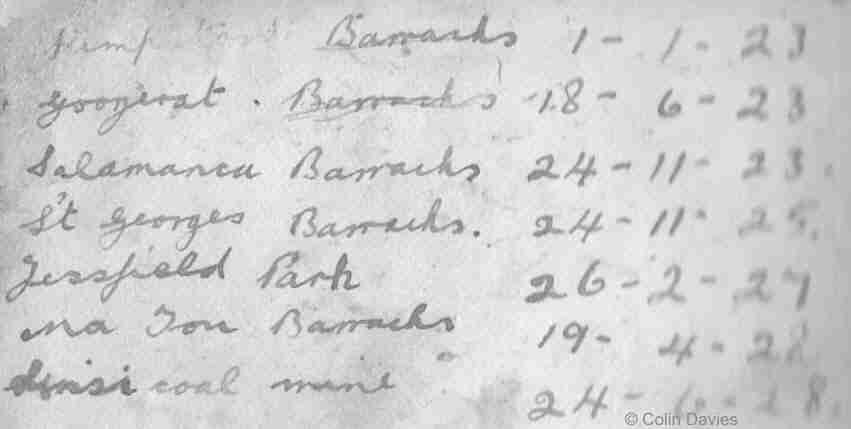 Barracks 1 - 1 - 23
Googerat . Barracks 18 - 6 - 23
Salamanca Barracks 24 - 11 - 23.
St Georges Barracks. 24 - 11 - 25.
Jessfield Park 26 - 2 - 27
Ma Tou Barracks 19 - 4 - 28
coal mine 24 - 6 - 28.
© Colin Davies